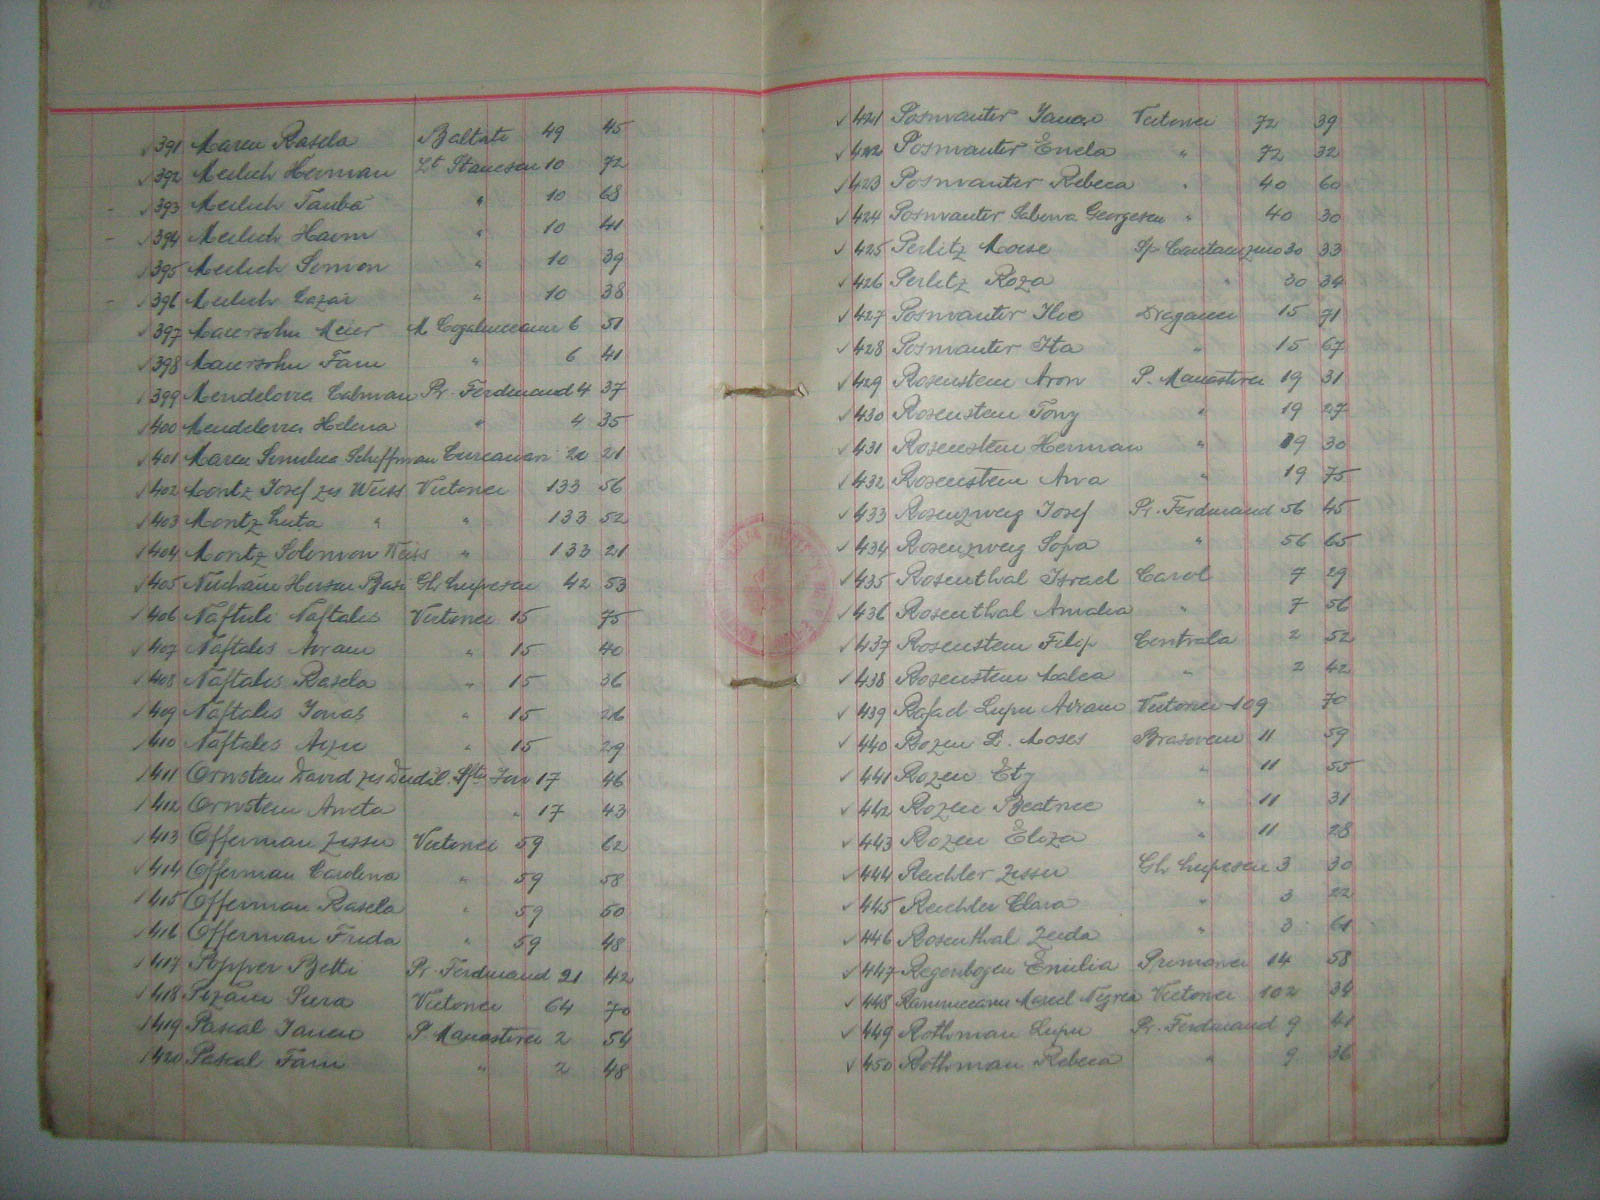 391 Marcu Rasela Baltate 49 45
392 Meilich Herman Lt Stanescu 10 72
393 Meilich Tauba " 10 68
394 Meilich Haim " 10 41
395 Meilich Simon " 10 39
396 Meilich Lazar " 10 38
397 Maiersohn Meier M Cogalniceanu 6 51
398 Maiersohn Fani " 6 41
399 Mendelovici Calman Pr. Ferdinand 4 37
400 Mendelovici Helena " 4 35
401 Marcu Schiffman 20 21
402 Moritz Iosef zis Weiss Victoriei 133 56
403 Moritz " " 133 52
404 Moritz Solomon Weiss " 133 21
405 Gh Lupescu 42 53
406 Naftuli Naftalis Victoriei 15 75
407 Naftalis Avram " 15 40
408 Naftalis Rasela " 15 36
409 Naftalis Ionas " 15 26
410 Naftalis " 15 29
411 Ornstein David zis Sft Ion 17 46
412 Ornstein Aneta " 17 43
413 Offerman Zissu Victoriei 59 62
414 Offerman Carolina " 59 58
415 Offerman Rasela " 59 50
416 Offerman Frida " 59 48
417 Popper Betti Pr. Ferdinand 21 42
418 Sura Victoriei 64 70
419 Pascal Iancu P. Manastirei 2 54
420 Pascal Fani " 2 48
421 Posmantir Iancu Victoriei 72 39
422 Posmantir " 72 32
423 Posmantir Rebeca " 40 60
424 Posmantir Sabina Georgescu " 40 30
425 Perlitz Moise Sp Cantacuzino 30 33
426 Perlitz Roza " 30 34
427 Posmantir Ilie 15 71
428 Posmantir Ita " 15 67
429 Rosenstein Aron P. Manastirei 19 31
430 Rosenstein Tony " 19 27
431 Rosenstein Herman " 19 30
432 Rosenstein Ana " 19 75
433 Rosenzweig Iosef Pr. Ferdinand 56 45
434 Rosenzweig Sofia " 56 65
435 Rosenthal Israel Carol 7 29
436 Rosenthal Amalia " 7 56
437 Rosenstein Filip Centrala 2 52
438 Rosenstein Malca " 2 42
439 Rafael Lupu Avram Victoriei 109 70
440 Rozen L. Moses Brasoveni 11 59
441 Rozen Ety " 11 55
442 Rozen Beatrice " 11 31
443 Rozen Eliza " 11 28
444 Reichler Zissu Gh Lupescu 3 30
445 Reichler Clara " 3 22
446 Rosenthal Zeida " 3 61
447 Regenbogen Emilia Primariei 14 58
448 Ramniceanu Marcel Negrea Victoriei 102 34
449 Rothman Lupu Pr. Ferdinand 9 41
450 Rothman Rebeca " 9 36